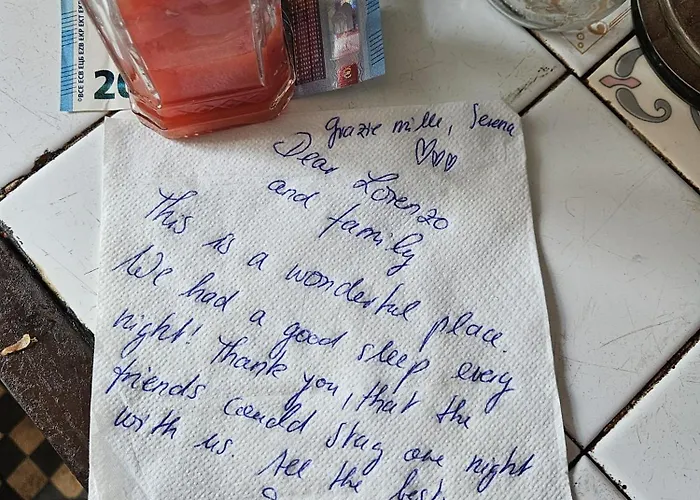 20
©BCE ECB ЕЦБ EZB EKP EKT
grazie mille, Serena
Dear Lorenzo
and family
This is a wonderful place.
We had a good sleep every
night! Thank you, that the
friends could stay one night
with us. All the best